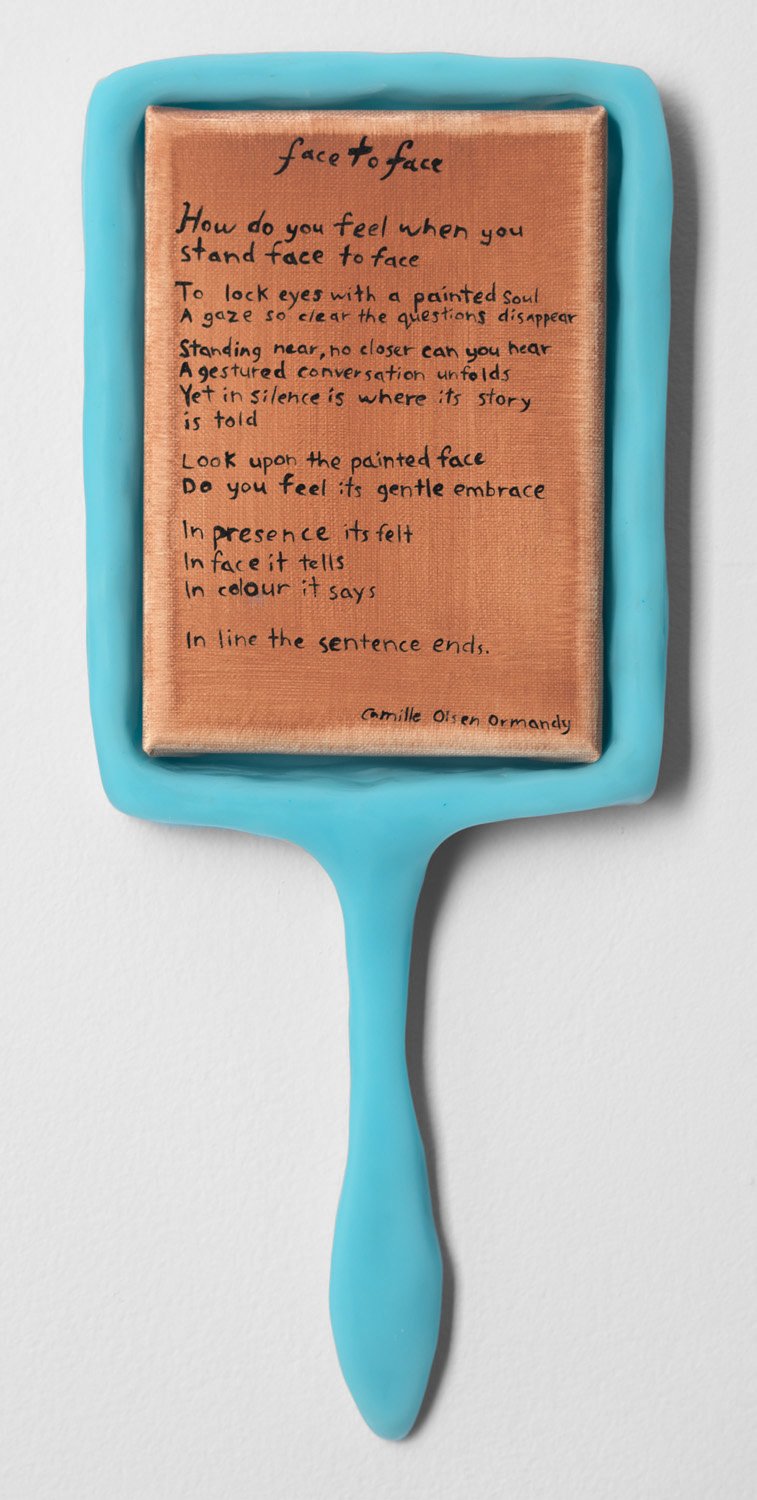 face to face
How do you feel when you
stand face to face
To lock eyes with a painted soul
A gaze so clear the questions disappear
Standing near, no closer can you hear
A gestured conversation unfolds
Yet in silence is where its story
is told
Look upon the painted face
Do you feel its gentle embrace
In presence its felt
In face it tells
In colour it says
In line the sentence ends.
Camille Olsen Ormandy